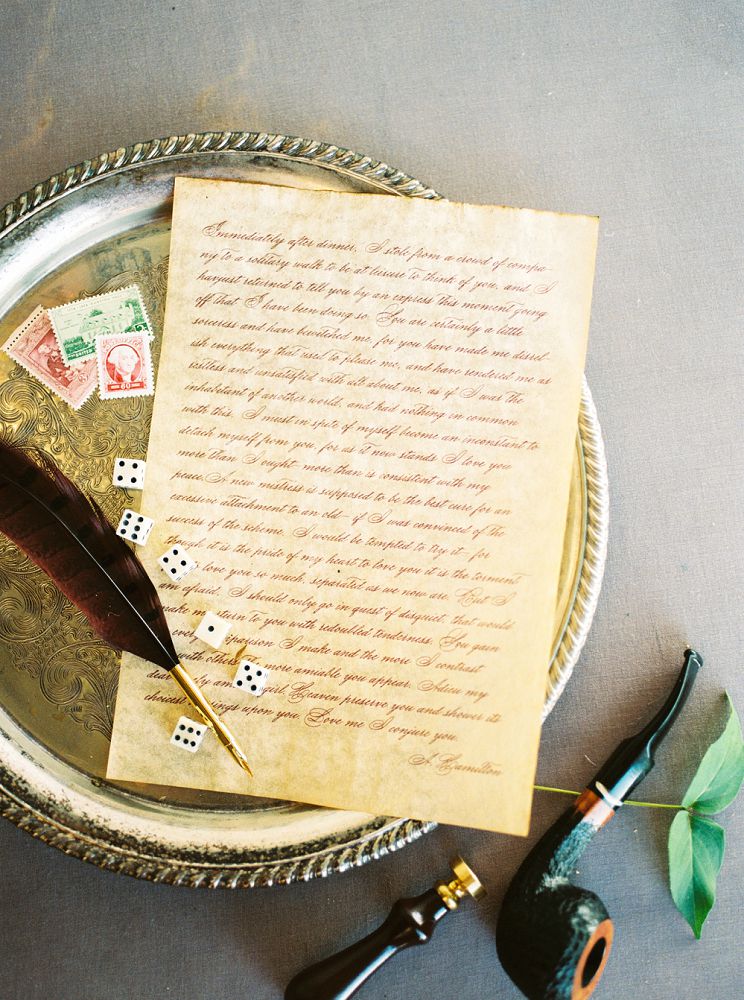 Immediately after dinner, I stole from a crowd of compa-
ny to a solitary walk to be at leisure to think of you, and I
havjust returned to tell you by an express this moment going
off that I have been doing so. You are certainly a little
sorceress and have bewitched me, for you have made me disrel-
ish everything that used to please me, and have rendered me as
restless and unsatisfied with all about me, as if I was the
inhabitant of another world, and had nothing in common
with this. I must in spite of myself become an inconstant to
detach myself from you, for as it now stands I love you
more than I ought—more than is consistent with my
peace. A new mistress is supposed to be the best cure for an
excessive attachment to an old—if I was convinced of the
success of the scheme, I would be tempted to try it—for
though it is the pride of my heart to love you it is the torment
love you so much, separated as we now are. But I
am afraid, I should only go in quest of disquiet, that would
make me return to you with redoubled tenderness. You gain
every comparison I make and the more I contrast
with others the more amiable you appear. Adieu my
dear my girl. Heaven preserve you and shower its
choicest upon you Love me I conjure you.
A. Hamilton
60